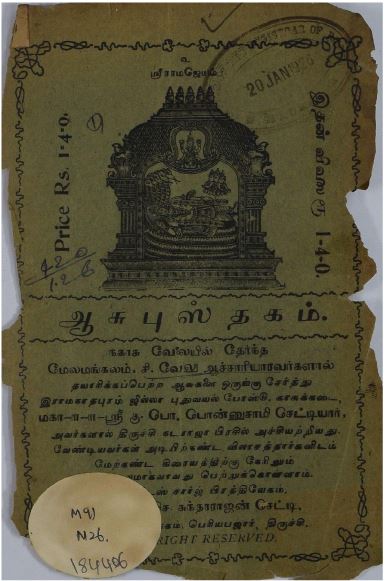 உ
ஸ்ரீராமஜெயம்.
REGISTRAR OF
20 JAN 1926
Price Rs. 1-4-0.
இதன் விலை ரூ 1-4-0.
420
1.2.6
ஆசுபுஸ்தகம்.
நகாசு வேலையில் தேர்ந்த
மேலமங்கலம், சி. வேலு ஆச்சாரியாரவர்களால்
தயாரிக்கப்பெற்ற ஆசுகளை ஒருங்கு சேர்த்து
இராமநாதபுரம் ஜில்லா புதுவயல் போஸ்டு,
மகா-ா-ா-ஸ்ரீ கு. பொ. பொன்னுசாமி செட்டியார்,
அவர்களால் திருச்சி நடராஜா பிரஸில் அச்சியற்றியது.
வேண்டியவர்கள் அடியிற்கண்ட விலாசத்தார்களிடம்
மேற்கண்ட கிரையத்திற்கு நேரிலும்
மாகவாவது பெற்றுக்கொள்ளலாம்.
ஸ் சார்ஜ் பிரத்தியேகம்.
சுந்தரராஜன் செட்டி,
பெரியபஜார், திருச்சி.
RIGHT RESERVED.
M91
N26.
184496